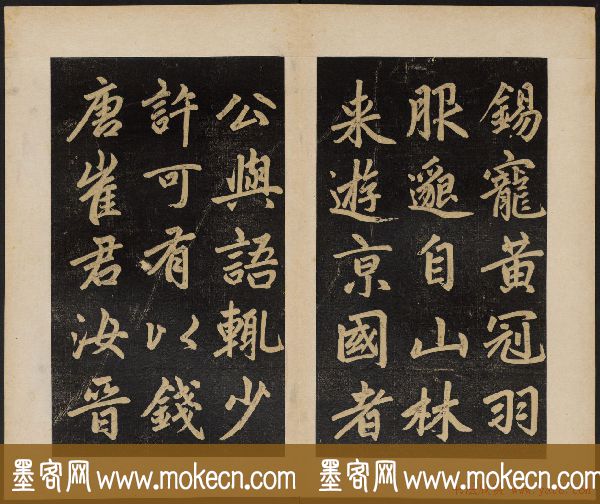 錫寵黃冠羽
服邈自山林
来遊京國者
公與語輒少
許可有以錢
唐崔君汝晉
墨客网 www.mokecn.com
墨客网 www.mokecn.com